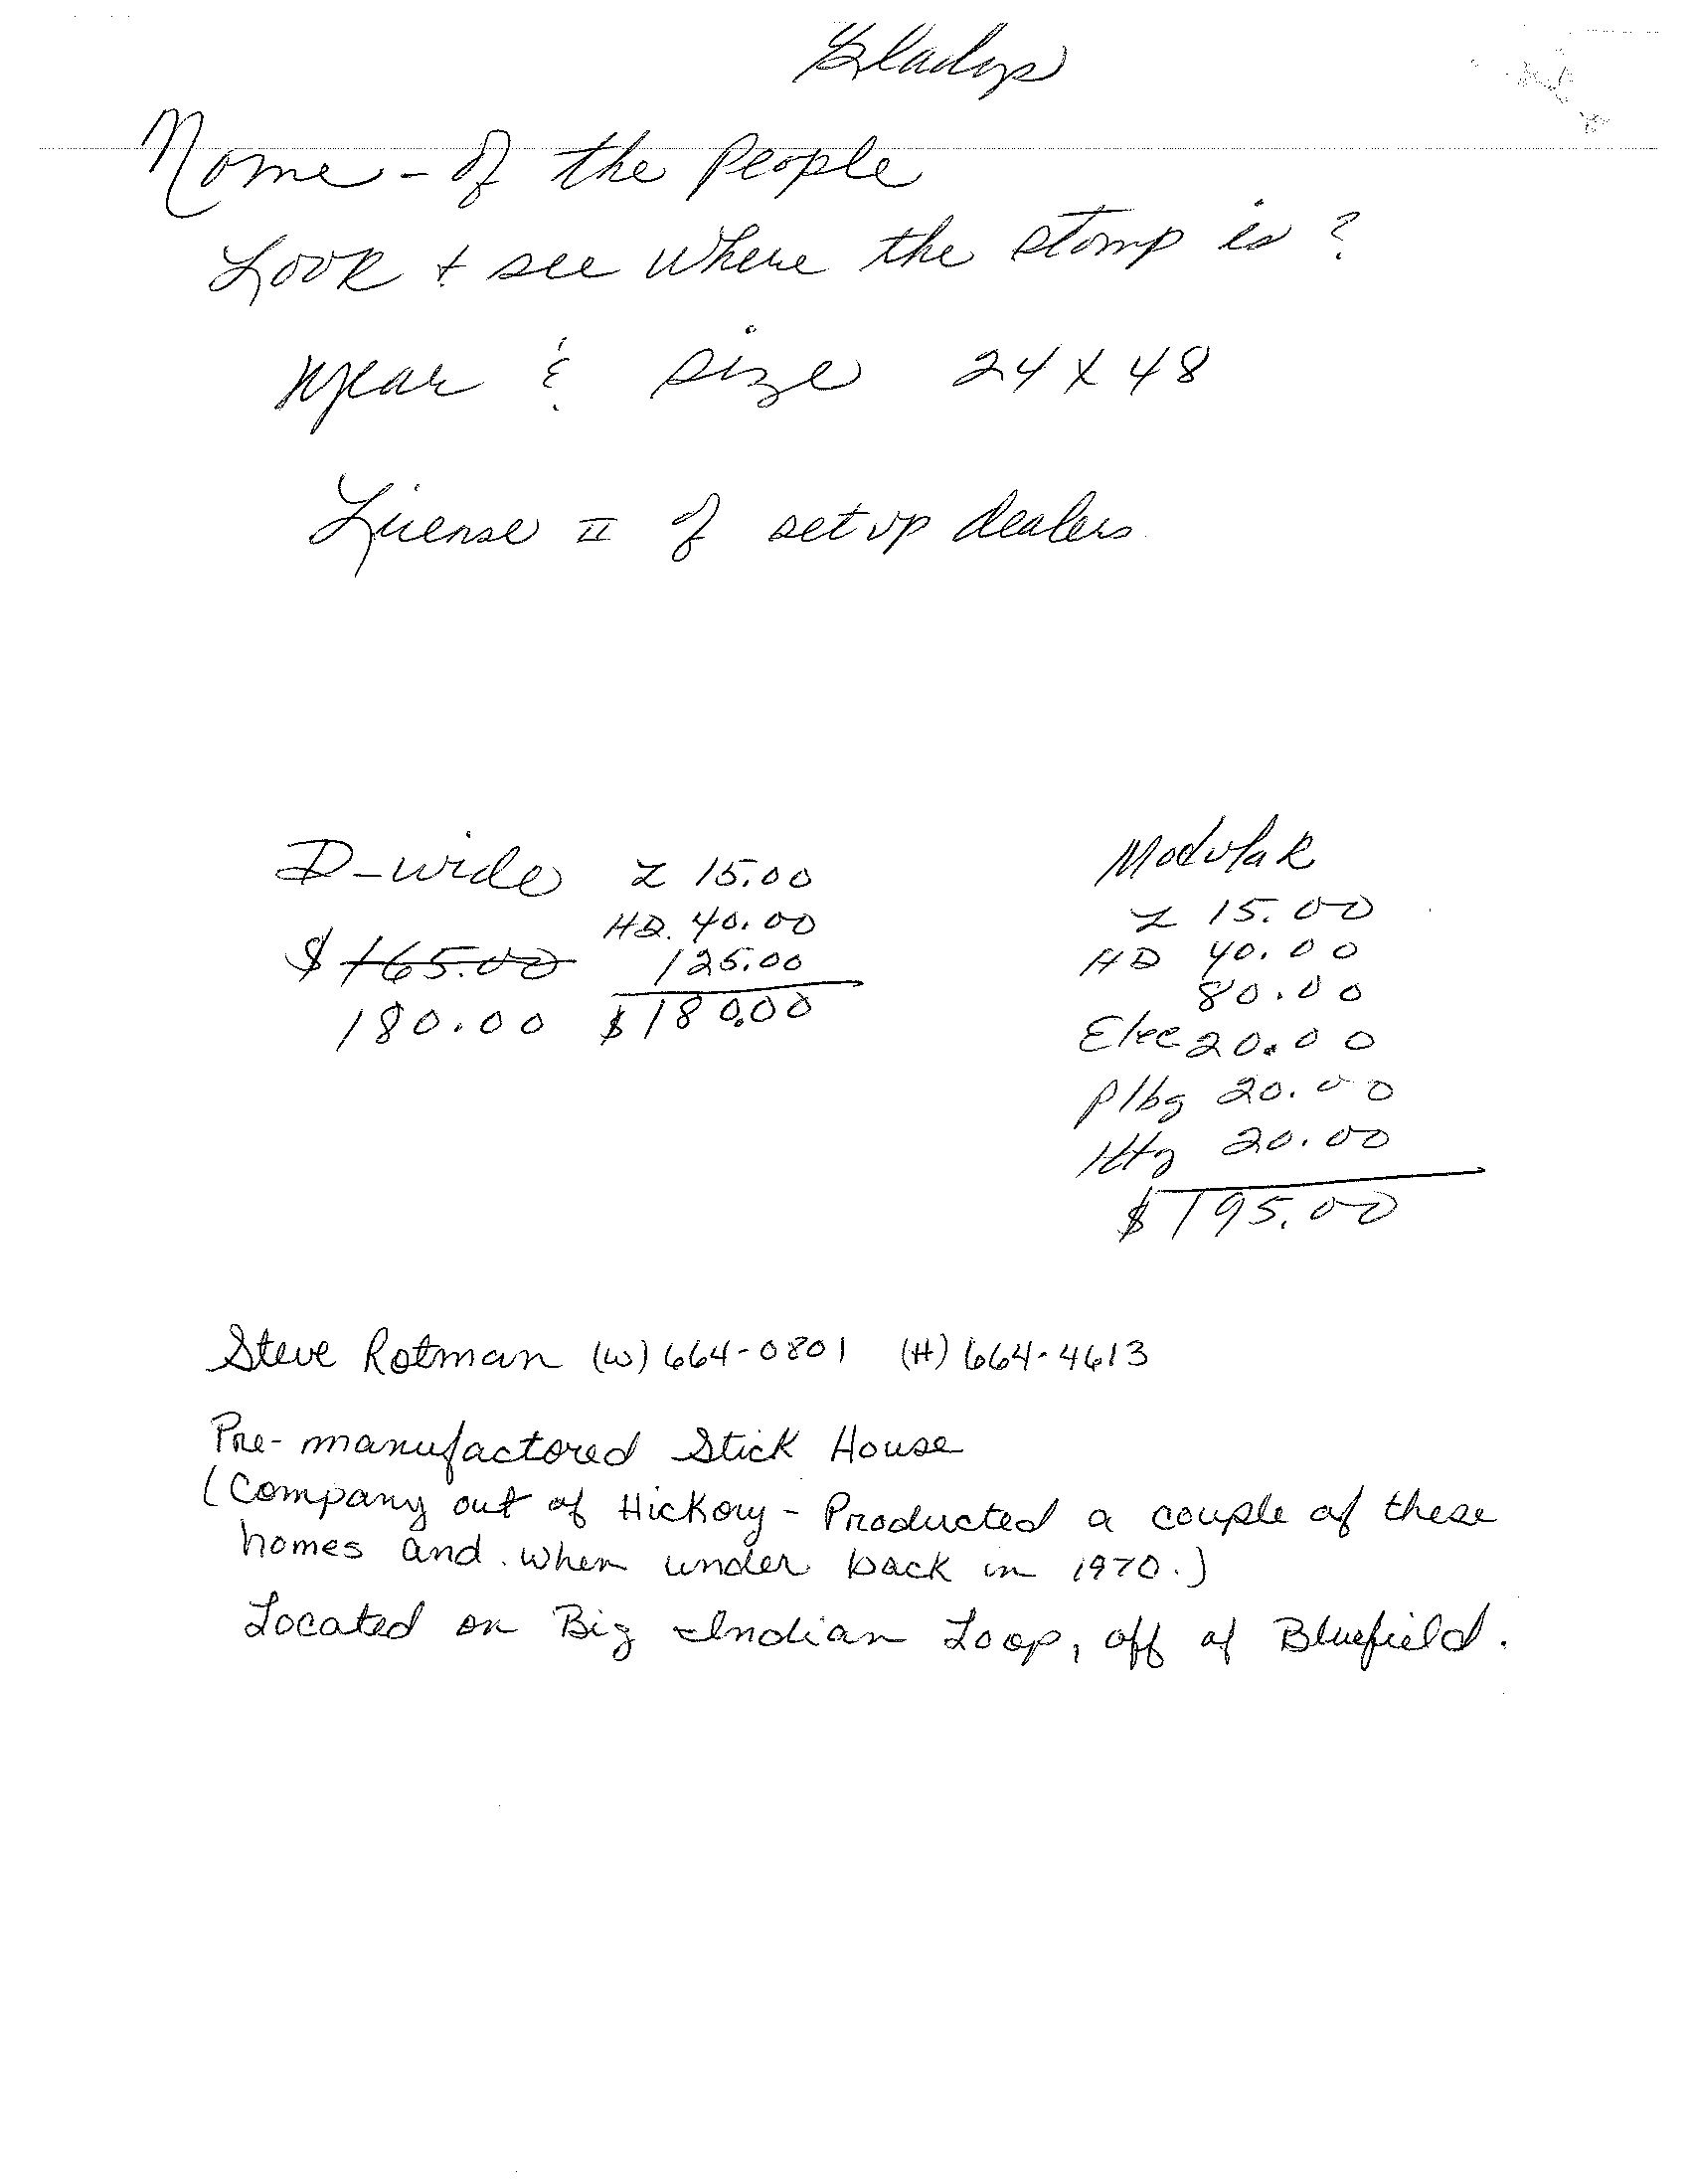 Gladys
Name - of the People
Look + see where the stomp is?
year & size 24 x 48
License II of set up dealers
D-wide Z 15.00
HD. 40.00
$165.00 125.00
180.00 $180.00
Modular
Z 15.00
HD 40.00
80.00
Elec 20.00
Plbg 20.00
Htg 20.00
$195.00
Steve Rotman (W) 664-0801 (H) 664-4613
Pre-manufactored Stick House
(Company out of Hickory - Producted a couple of these
homes and when under back in 1970.)
Located on Big Indian Loop, off of Bluefield.